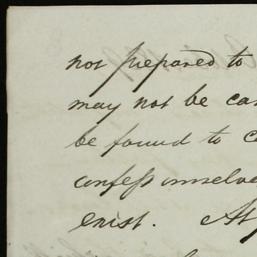 not prepared to
may not be ca
be found to c
confess ourselve
exist. At